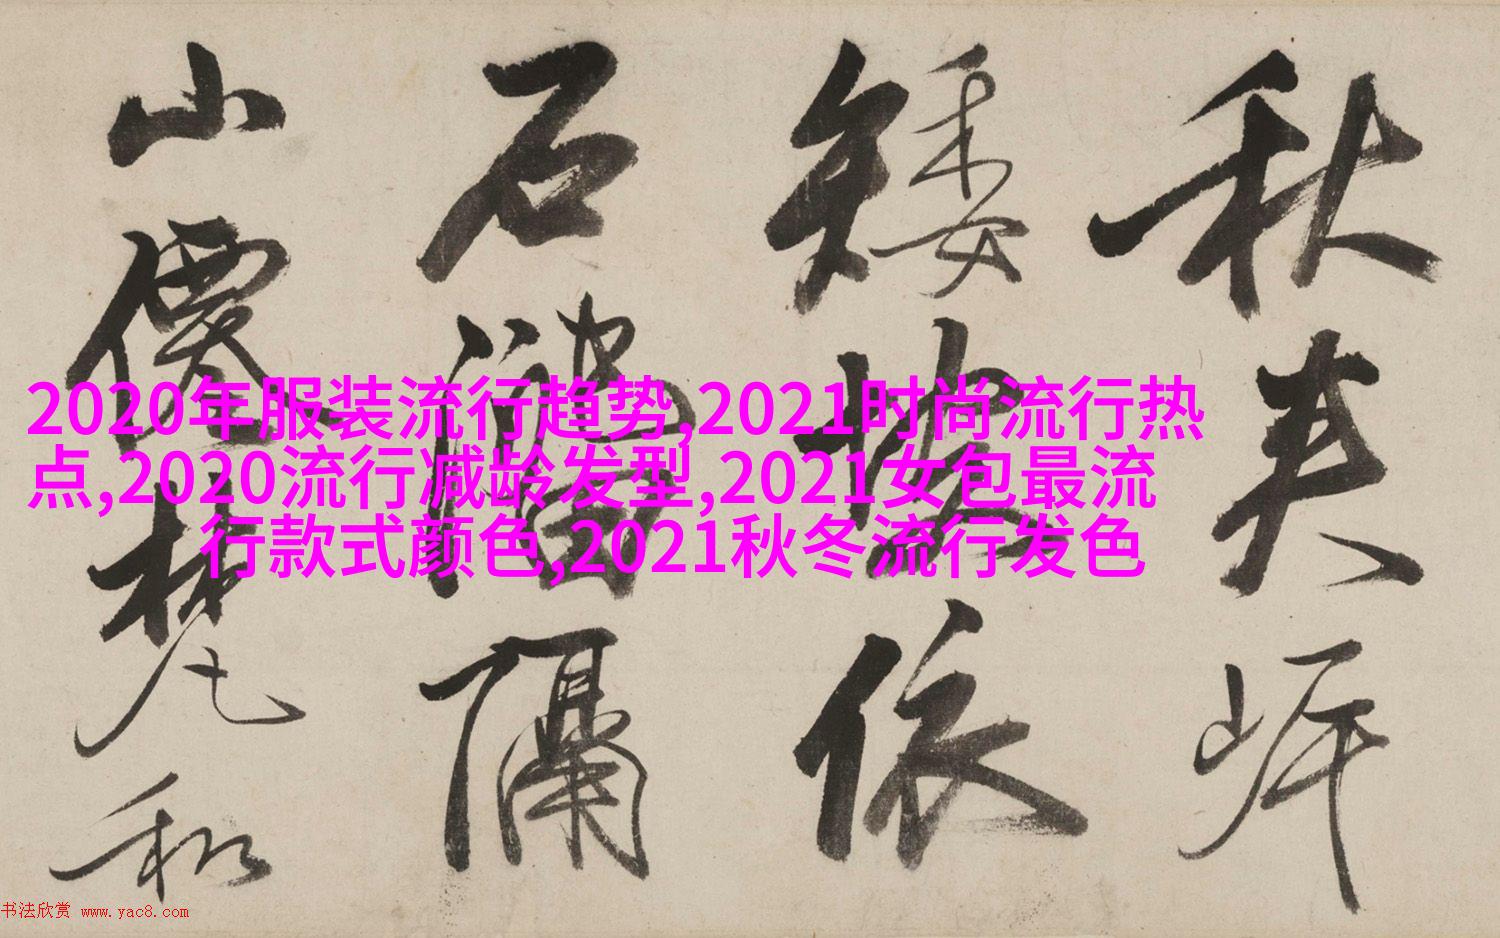 秋英岸
矮揆依
石牆隔
山僕楚和
2020年服装流行趋势,2021时尚流行热
点,2020流行减龄发型,2021女包最流
行款式颜色,2021秋冬流行发色
书法欣赏 www.yac8.com